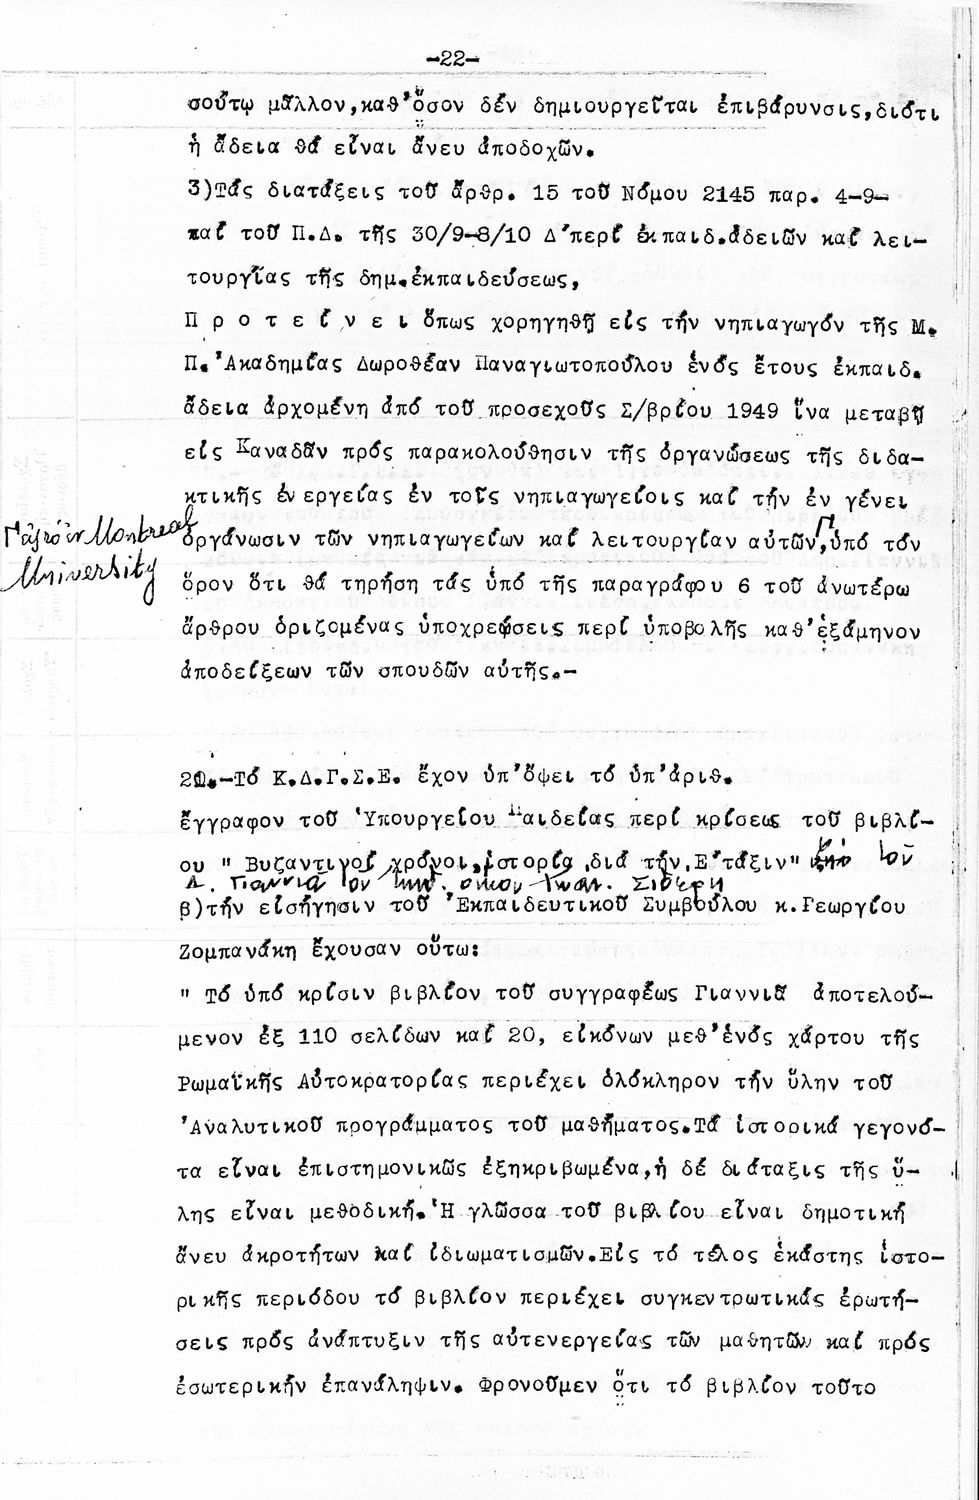 -22-
σούτῳ μᾶλλον,καθ'ὅσον δέν δημιουργεῖται ἐπιβάρυνσις,διότι
ἡ ἄδεια θά εἶναι ἄνευ ἀποδοχῶν.
3)Τάς διατάξεις τοῦ ἄρθρ. 15 τοῦ Νόμου 2145 παρ. 4-9-
καί τοῦ Π.Δ. τῆς 30/9-8/10 Δ'περί ἐκπαιδ.ἀδειῶν καί λει-
τουργίας τῆς δημ.ἐκπαιδεύσεως,
Π ρ ο τ ε ί ν ε ι ὅπως χορηγηθῇ εἰς τήν νηπιαγωγόν τῆς Μ.
Π.'Ακαδημίας Δωροθέαν Παναγιωτοπούλου ἑνός ἔτους ἐκπαιδ.
ἄδεια ἀρχομένη ἀπό τοῦ προσεχοῦς Σ/βρίου 1949 ἵνα μεταβῇ
εἰς Καναδᾶν πρός παρακολούθησιν τῆς ὀργανώσεως τῆς διδα-
κτικῆς ἐνεργείας ἐν τοῖς νηπιαγωγείοις καί τήν ἐν γένει
ὀργάνωσιν τῶν νηπιαγωγείων καί λειτουργίαν αὐτῶν,Γ ὑπό τόν
Montreal
University
ὅρον ὅτι θά τηρήση τάς ὑπό τῆς παραγράφου 6 τοῦ ἀνωτέρω
ἄρθρου ὁριζομένας ὑποχρεώσεις περί ὑποβολῆς καθ'ἑξάμηνον
ἀποδείξεων τῶν σπουδῶν αὐτῆς.-
21.-Τό Κ.Δ.Γ.Σ.Ε. ἔχον ὑπ'ὄψει τό ὑπ'ἀριθ.
ἔγγραφον τοῦ 'Υπουργείου Παιδείας περί κρίσεως τοῦ βιβλί-
ου " Βυζαντινοί χρόνοι,ἱστορία διά τήν Ε'τάξιν" ὑπό τοῦ
Δ. Γιαννιᾶ τοῦ οἴκου Ἰωάν. Σιδέρη
β)τήν εἰσήγησιν τοῦ 'Εκπαιδευτικοῦ Συμβούλου κ.Γεωργίου
Ζομπανάκη ἔχουσαν οὕτω:
" Τό ὑπό κρίσιν βιβλίον τοῦ συγγραφέως Γιαννιᾶ ἀποτελού-
μενον ἐξ 110 σελίδων καί 20, εἰκόνων μεθ'ἑνός χάρτου τῆς
Ρωμαϊκῆς Αὐτοκρατορίας περιέχει ὁλόκληρον τήν ὕλην τοῦ
'Αναλυτικοῦ προγράμματος τοῦ μαθήματος.Τά ἱστορικά γεγονό-
τα εἶναι ἐπιστημονικῶς ἐξηκριβωμένα,ἡ δέ διάταξις τῆς ὕ-
λης εἶναι μεθοδική.'Η γλῶσσα τοῦ βιβλίου εἶναι δημοτική
ἄνευ ἀκροτήτων καί ἰδιωματισμῶν.Εἰς τό τέλος ἑκάστης ἱστο-
ρικῆς περιόδου τό βιβλίον περιέχει συγκεντρωτικάς ἐρωτή-
σεις πρός ἀνάπτυξιν τῆς αὐτενεργείας τῶν μαθητῶν καί πρός
ἐσωτερικήν ἐπανάληψιν. Φρονοῦμεν ὅτι τό βιβλίον τοῦτο